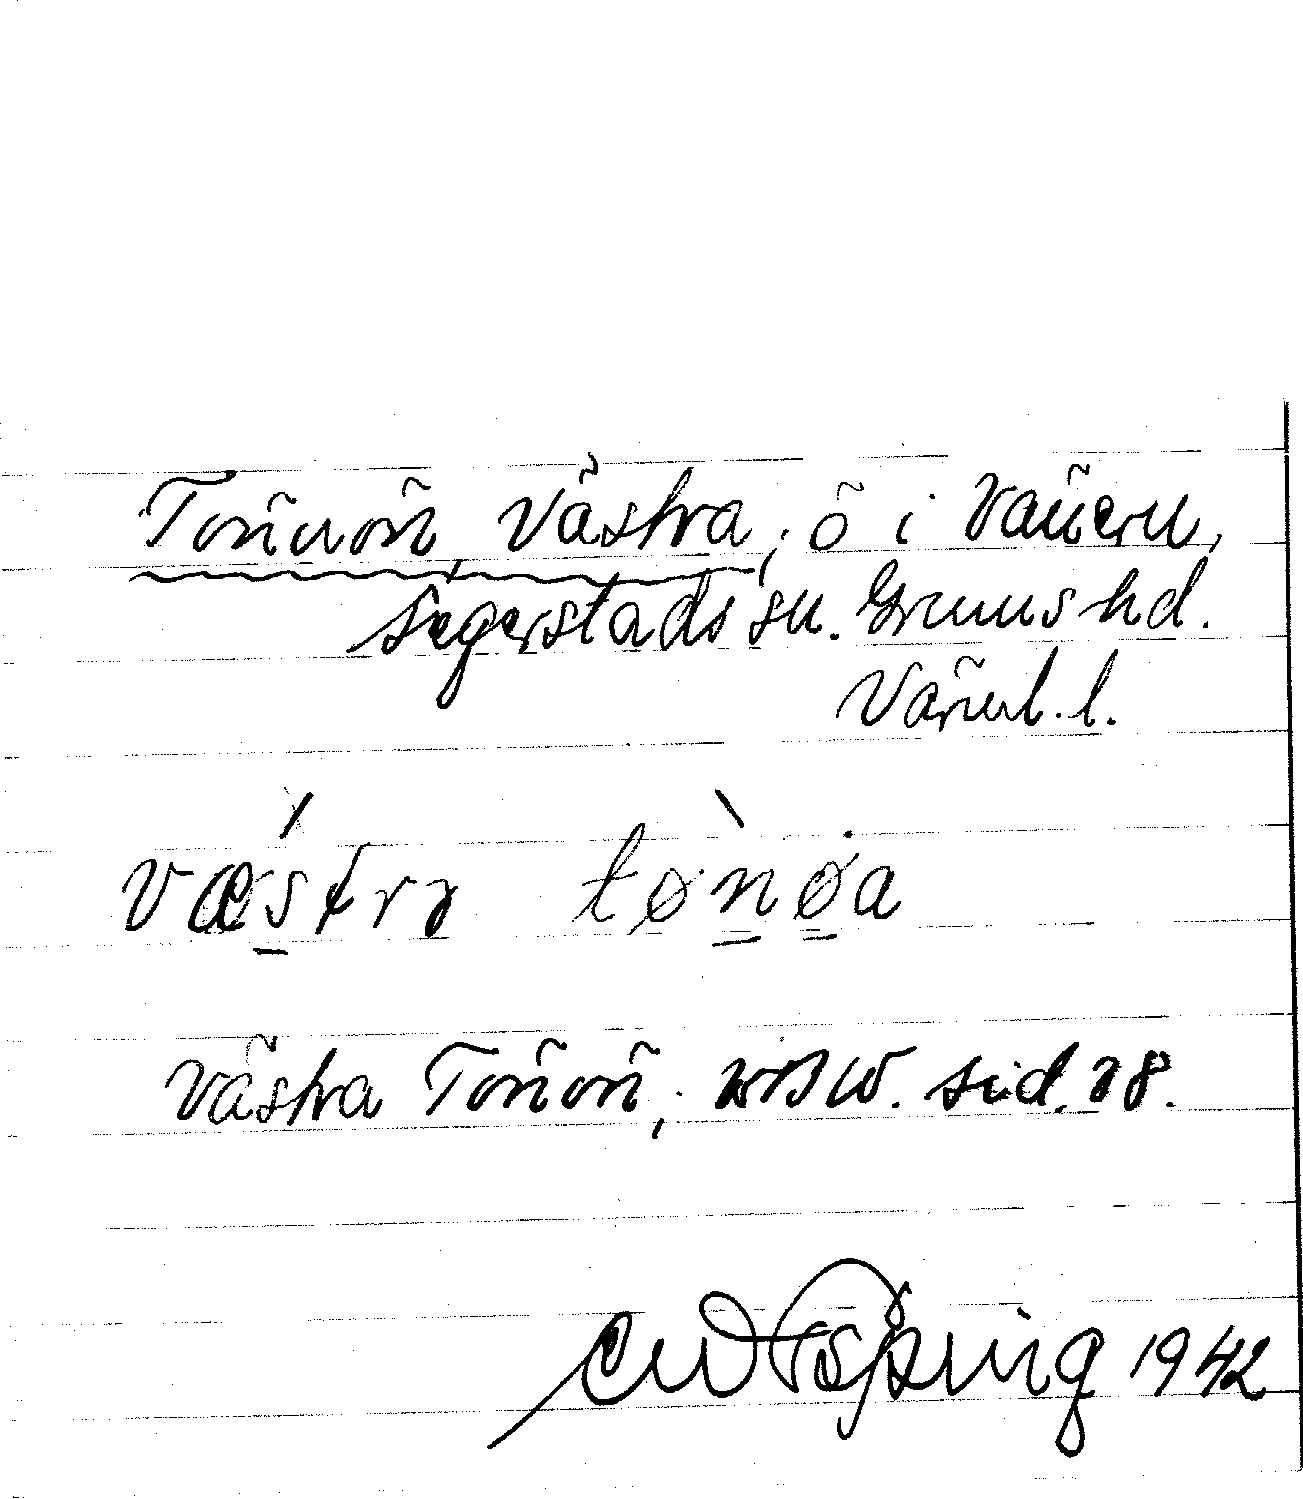 Tönnön, Västra, ö i Vänern,
Segerstads sn. Grums hd.
Värml. l.
væstra tønøa
Västra Tönön, sid. 28.
1942